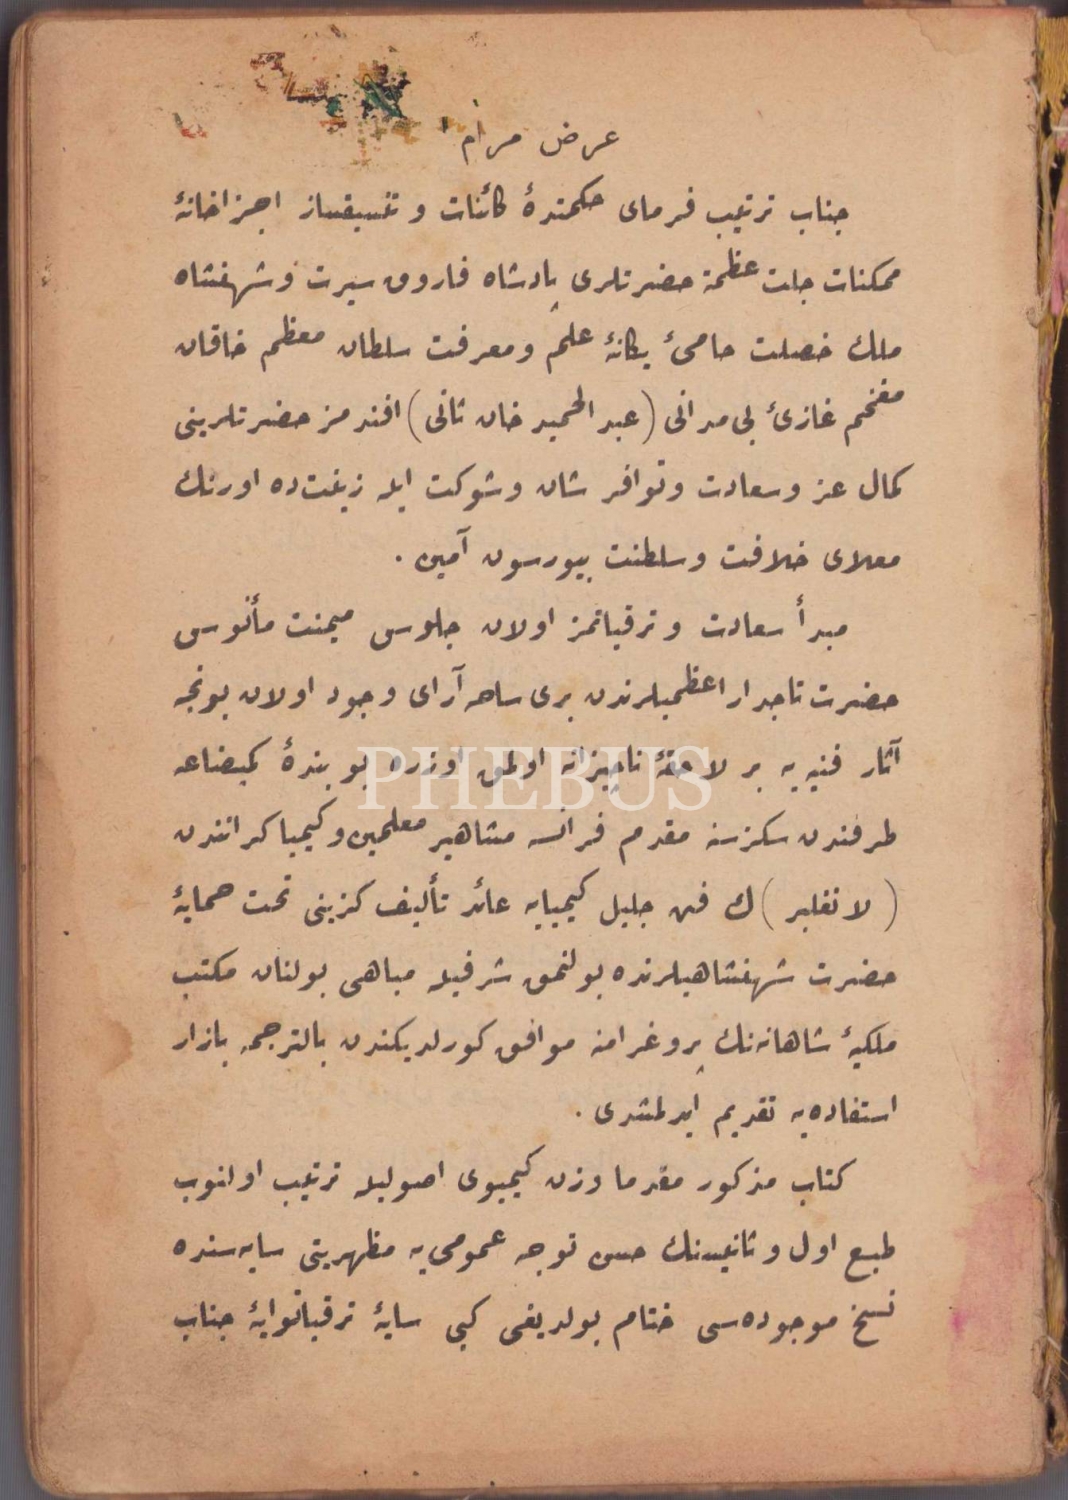 عرض مرام
جناب ترتیب فرمای حکمتدهٔ کائنات و تنسیقساز اجزاخانهٔ
ممکنات جلت عظمته حضرتلری پادشاه فاروق سیرت و شهنشاه
ملك خصلت حامیٔ یکانهٔ علم و معرفت سلطان معظم خاقان
مفخم غازیٔ بی مدانی (عبد الحمید خان ثانی) افندمز حضرتلرینی
کمال عز و سعادت و توافر شان و شوکت ایله زینت‌ده اورنك
معلای خلافت و سلطنت بیورسون آمین .
مبدأ سعادت و ترقیاتمز اولان جلوس میمنت مأنوس
حضرت تاجدار اعظمیلرندن بری ساحه آرای وجود اولان بونجه
آثار فنیه‌یه بر لاحقهٔ ناچیزانه اولمق اوزره بو بندهٔ کمبضاعه
طرفندن سکز سنه مقدم فرانسه مشاهیر معلمین و کیمیاکرانندن
(لانغلبر) ك فن جلیل کیمیایه عائد تألیف کزینی تحت حمایهٔ
حضرت شهنشاهیلرنده بولنمق شرفیله مباهی بولنان مکتب
ملکیهٔ شاهانه‌نك پروغرامنه موافق کورلدیکندن بالترجمه بازار
استفاده‌یه تقدیم ایدلمشدی .
کتاب مذکور مقدما وزن کیمیوی اصولیله ترتیب اولنوب
طبع اول و ثانیسنك حسن توجه عمومی‌یه مظهریتی سایه‌سنده
نسخ موجوده‌سی ختام بولدیغی کبی سایهٔ ترقیاتوایهٔ جناب
PHEBUS